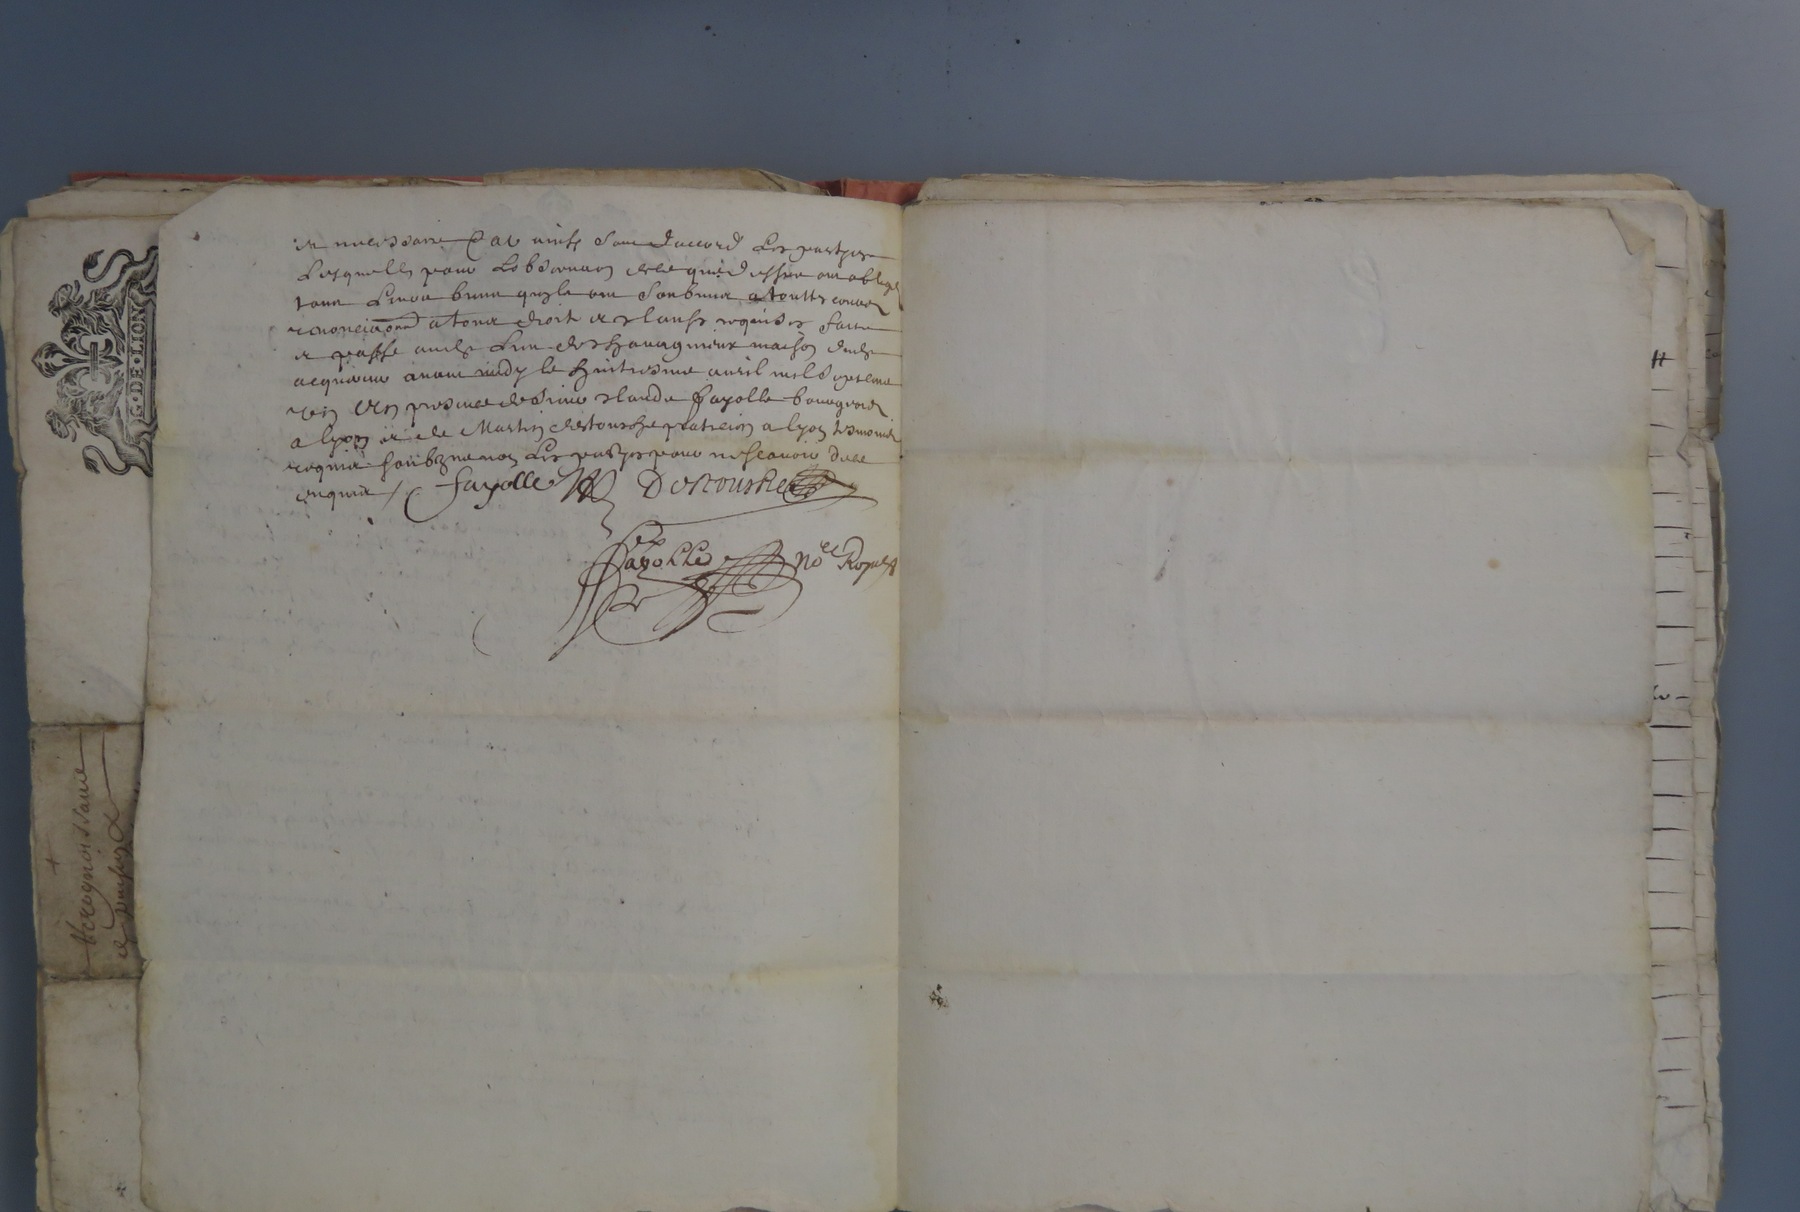 et necessaire Car ainsi sont d'accord les partyes
Lesquelles pour Lobservaon de ce que dessus ont obligé
tous Leurs biens quils ont soubmis a touttes cours
renonciaon a tous droit et clause requises fait
et passé audit Lieu de Chavagnieux maison dudit
acquereur avant midy le huictiesme avril mil sept cent
En presence de sieur Claude fayolle bourgeois
a lyon et de Martin Destousche praticien a lyon tesmoins
requis soubzigne non Les partyes pour ne scavoir de ce
enquis /
fayolle Destousche
fayolle No.re Royal
G. DE. LION
Recognoissance